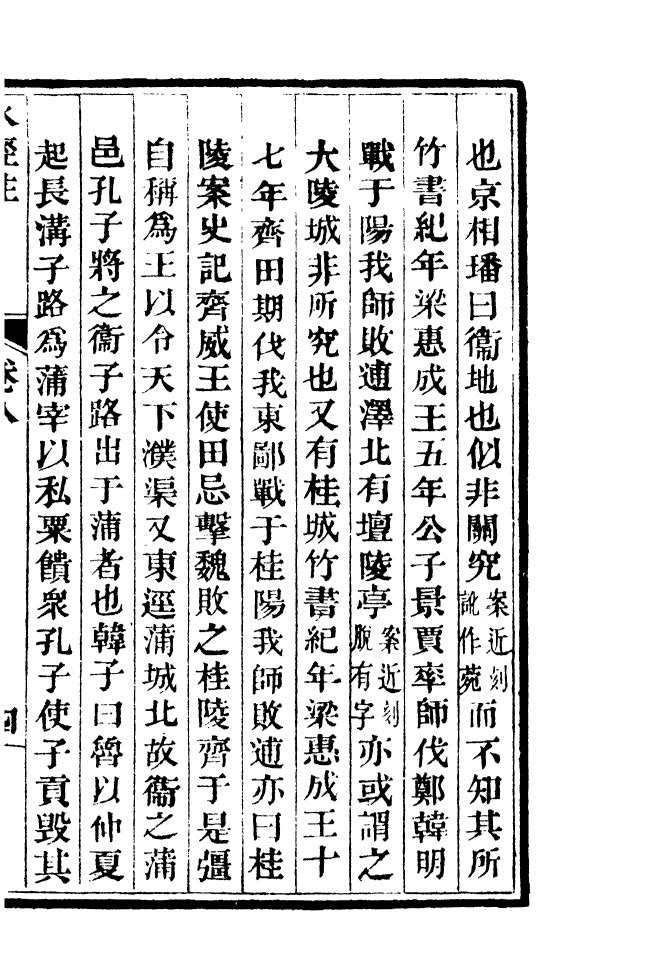 也京相璠曰衞地也似非關究案近刻訛作菀而不知其所
竹書紀年梁惠成王五年公子景賈率師伐鄭韓明
戰于陽我師敗逋澤北有壇陵亭案近刻脫有字亦或謂之
大陵城非所究也又有桂城竹書紀年梁惠成王十
七年齊田期伐我東鄙戰于桂陽我師敗逋亦曰桂
陵案史記齊威王使田忌擊魏敗之桂陵齊于是彊
自稱爲王以令天下濮渠又東逕蒲城北故衞之蒲
邑孔子將之衞子路出于蒲者也韓子曰魯以仲夏
起長溝子路爲蒲宰以私粟饋衆孔子使子貢毀其
水經注 卷八 四